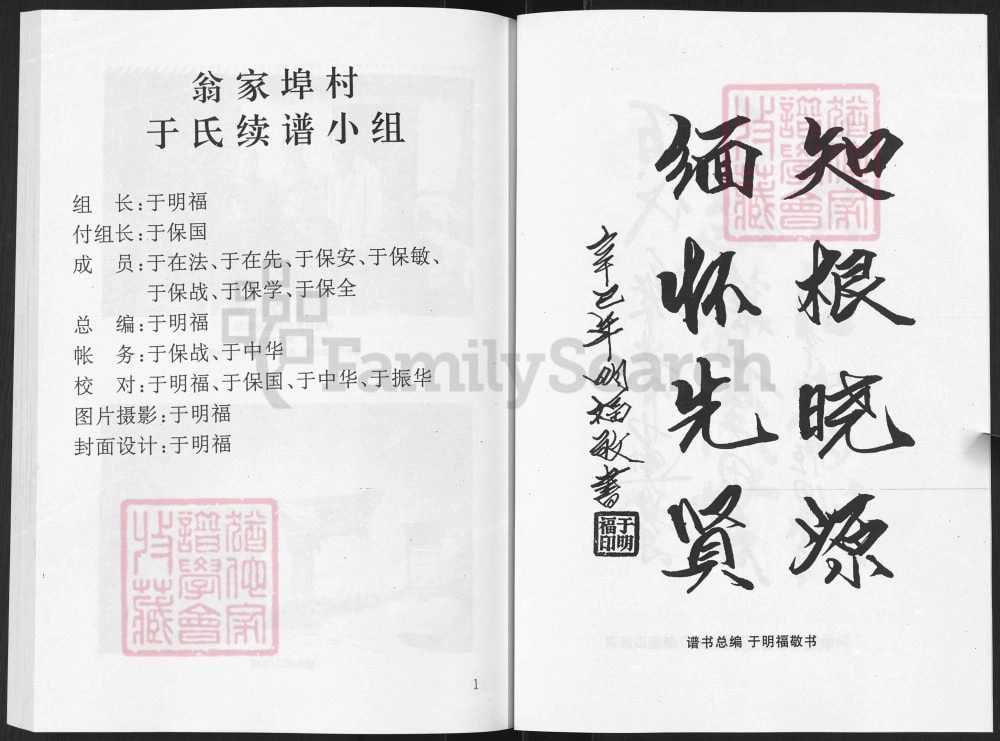 翁家埠村
于氏续谱小组
组　长:于明福
付组长:于保国
成　员:于在法、于在先、于保安、于保敏、
于保战、于保学、于保全
总　编:于明福
帐　务:于保战、于中华
校　对:于明福、于保国、于中华、于振华
图片摄影:于明福
封面设计:于明福
譜學會
收藏
1
知根晓源
缅怀先贤
辛巳年明福敬書
于明福印
譜學會
收藏
谱书总编 于明福敬书
FamilySearch